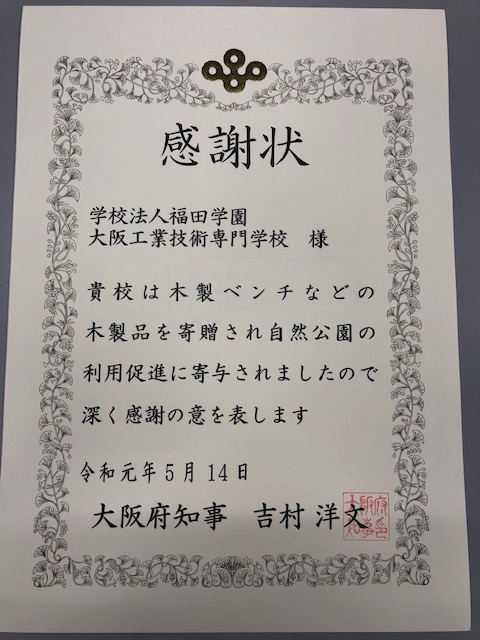 感謝状
学校法人福田学園
大阪工業技術専門学校　様
貴校は木製ベンチなどの
木製品を寄贈され自然公園の
利用促進に寄与されましたので
深く感謝の意を表します
令和元年5月14日
大阪府知事　吉村洋文
大阪府
知事印